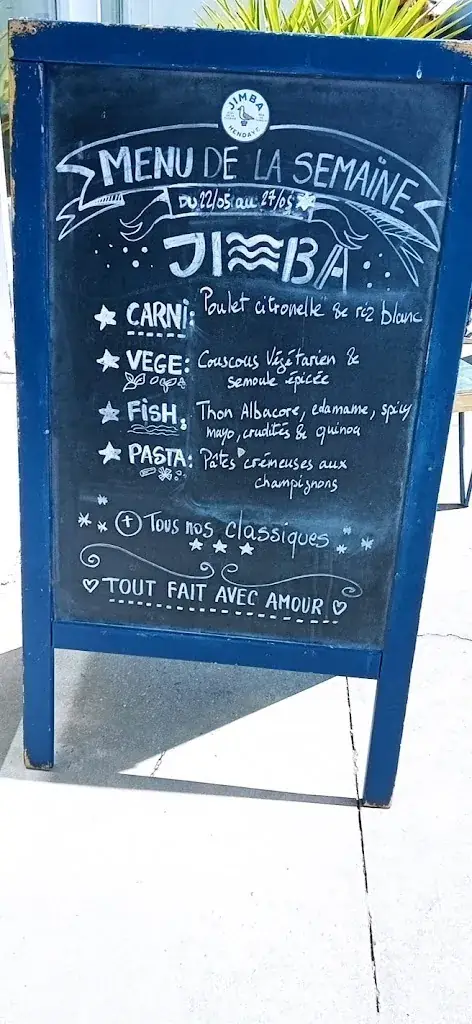 JIMBA
HENDAYE
MENU DE LA SEMAINE
DU 22/05 au 27/05
JIMBA
CARNI: Poulet citronelle & riz blanc
VEGE: Couscous Végétarien &
semoule épicée
FISH: Thon Albacore, edamame, spicy
mayo, crudités & quinoa
PASTA: Pâtes crémeuses aux
champignons
+ Tous nos classiques
TOUT FAIT AVEC AMOUR